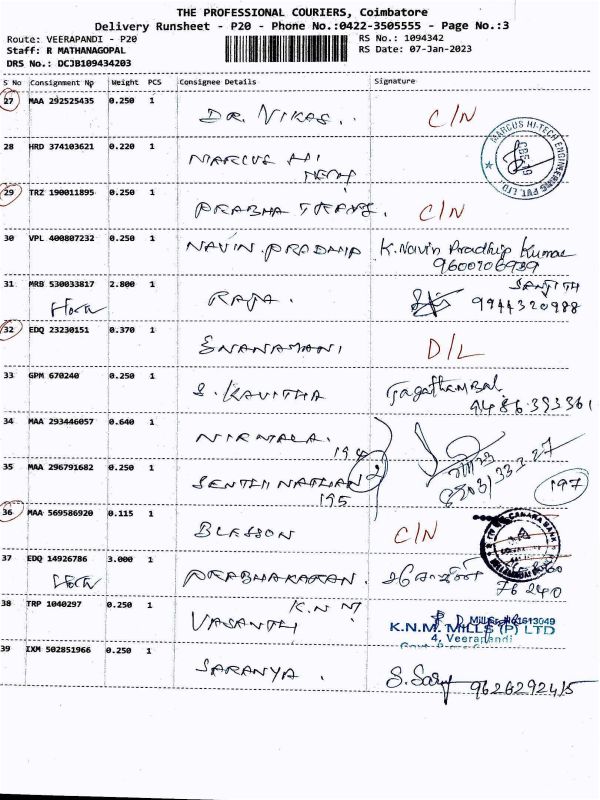 THE PROFESSIONAL COURIERS, Coimbatore
Delivery Runsheet - P20 - Phone No.:0422-3505555 - Page No.:3
Route: VEERAPANDI - P20 RS No.: 1094342
Staff: R MATHANAGOPAL RS Date: 07-Jan-2023
DRS No.: DCJB109434203
S No Consignment No Weight PCS Consignee Details Signature
27 MAA 292525435 0.250 1 DR. NIKAS.. C/N
28 HRD 374103621 0.220 1 MARCUS HI
MARCUS HI-TECH ENGINEERING PVT. LTD.
29 TRZ 190011895 0.250 1 PRABHA TRANS. C/N
30 VPL 400807232 0.250 1 NAVIN.PRADHIP K.Navin Pradhip Kumar
9600706939
31 MRB 530033817 2.800 1 RAJA. SANJITH
9944320988
32 EDQ 23230151 0.370 1 GNANAMANI D/L
33 GPM 670240 0.250 1 S. KAVITHA Jagathambal
9486393361
34 MAA 293446057 0.640 1 NIRMALA.
194
35 MAA 296791682 0.250 1 SENTHIL NATHAN 2 197
195
36 MAA 569586920 0.115 1 BLESSON C/N
CANARA BANK
37 EDQ 14926786 3.000 1 PRABHAKARAN.
76240
38 TRP 1040297 0.250 1 K.N.M
VASANTHI
K.N.M. MILLS (P) LTD
4, Veerapandi
39 IXM 502851966 0.250 1 SARANYA. S. Sary 9626292415